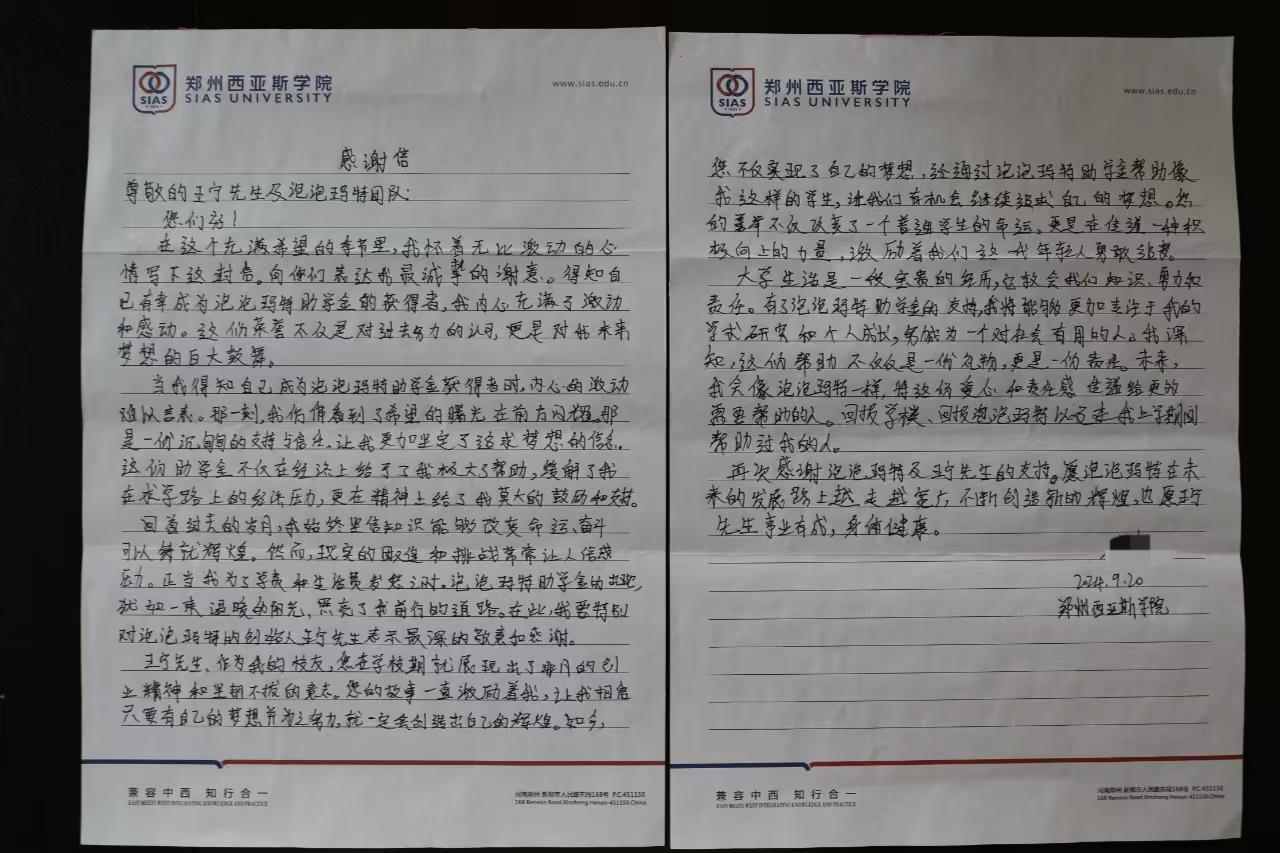 郑州西亚斯学院
SIAS UNIVERSITY
SIAS
www.sias.edu.cn
感谢信
尊敬的王宁先生及泡泡玛特团队:
您们好!
在这个充满希望的季节里,我怀着无比激动的心
情写下这封信。向你们表达我最诚挚的谢意。得知自
己有幸成为泡泡玛特助学金的获得者,我内心充满了激动
和感动。这份荣誉不仅是对过去努力的认可,更是对我未来
梦想的巨大鼓舞。
当我得知自己成为泡泡玛特助学金获得者时,内心的激动
难以言表。那一刻,我仿佛看到了希望的曙光在前方闪耀。那
是一份沉甸甸的支持与信任,让我更加坚定了追求梦想的信念。
这份助学金不仅在经济上给予了我极大帮助,缓解了我
在求学路上的经济压力,更在精神上给了我莫大的鼓励和支持。
回首过去的岁月,我始终坚信知识能够改变命运,奋斗
可以铸就辉煌。然而,现实的困难和挑战常常让人倍感
压力。正当我为了学费和生活费发愁之时。泡泡玛特助学金的出现,
犹如一束温暖的阳光,照亮了我前行的道路。在此,我要特别
对泡泡玛特的创始人王宁先生表示最深的敬意和感谢。
王宁先生、作为我的校友,您在学校期就展现出了非凡的创
业精神和坚韧不拔的意志。您的故事一直激励着我,让我相信
只要有自己的梦想并为之努力,就一定会创造出自己的辉煌。如今,
兼容中西 知行合一
EAST MEETS WEST INTEGRATING KNOWLEDGE AND PRACTICE
河南郑州 新郑市人民路东段168号 P.C:451150
168 Renmin Road Xinzheng Henan 451150.China
郑州西亚斯学院
SIAS UNIVERSITY
SIAS
www.sias.edu.cn
您不仅实现了自己的梦想,还通过泡泡玛特助学金帮助像
我这样的学生,让我们有机会继续追求自己的梦想。您
的善举不仅改变了一个普通学生的命运。更是在传递一种积
极向上的力量,激励着我们这一代年轻人勇敢追梦。
大学生活是一段宝贵的经历,它教会我们知识、努力和
责任。有了泡泡玛特助学金的支持,我将能够更加专注于我的
学术研究和个人成长,努成为一个对社会有用的人。我深
知,这份帮助不仅仅是一份礼物,更是一份责任。未来,
我会像泡泡玛特一样,将这份爱心和责任感传递给更多
需要帮助的人。回报学校、回报泡泡玛特以及在我上学期间
帮助过我的人。
再次感谢泡泡玛特及王宁先生的支持。愿泡泡玛特在未
来的发展路上越走越宽广不断创造新的辉煌,也愿王宁
先生事业有成,身体健康。
2024.9.20
郑州西亚斯学院
兼容中西 知行合一
EAST MEETS WEST INTEGRATING KNOWLEDGE AND PRACTICE
河南郑州 新郑市人民路东段168号 P.C:451150
168 Renmin Road Xinzheng Henan 451150.China